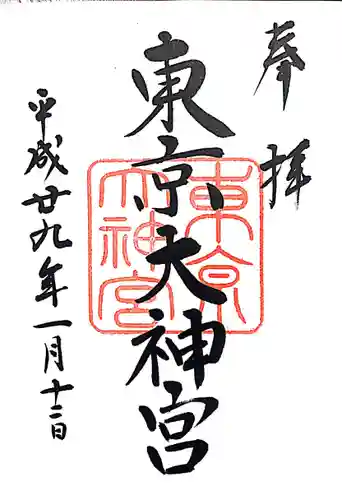 奉拝
東京天神宮
東京天神宮
平成廿九年一月十二日